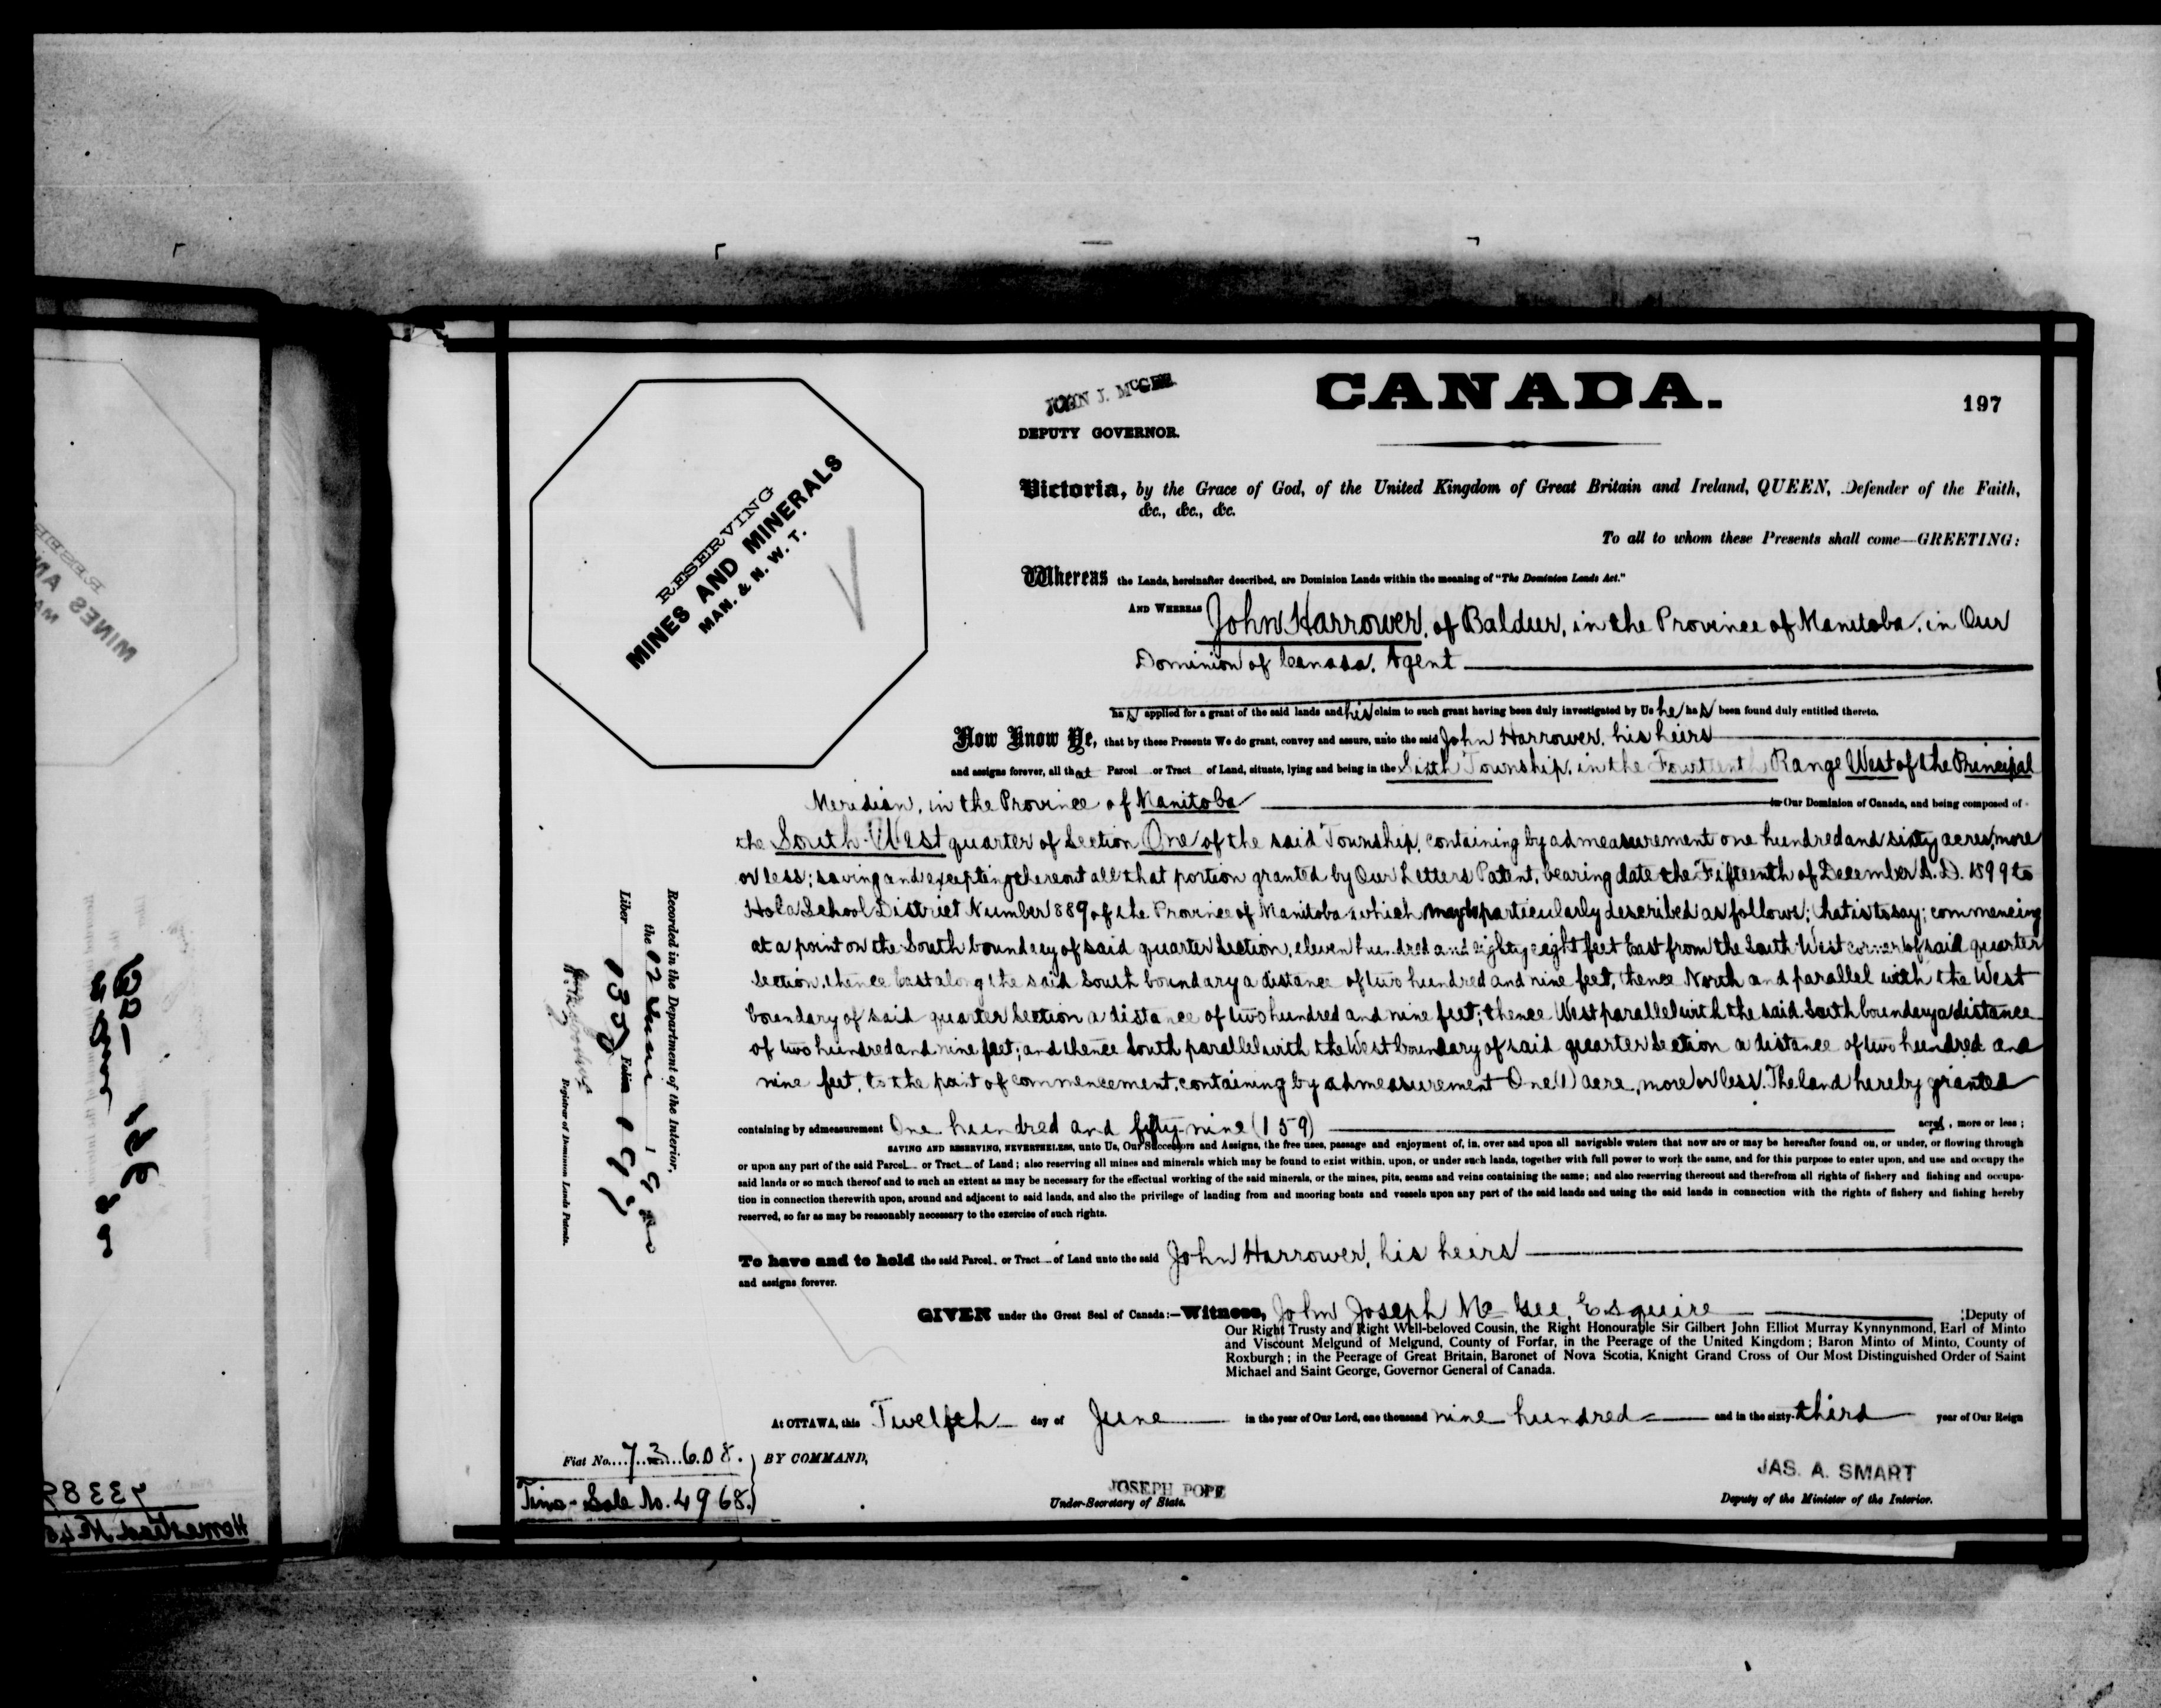 JOHN J. McGEE
DEPUTY GOVERNOR.
CANADA.
197
RESERVING
MINES AND MINERALS
MAN. & N. W. T.
Victoria, by the Grace of God, of the United Kingdom of Great Britain and Ireland, QUEEN, Defender of the Faith,
&c., &c., &c.
To all to whom these Presents shall come—GREETING:
Whereas the Lands, hereinafter described, are Dominion Lands within the meaning of "The Dominion Lands Act."
AND WHEREAS John Harrower, of Baldur, in the Province of Manitoba, in Our
Dominion of Canada, Agent
has applied for a grant of the said lands and his claim to such grant having been duly investigated by Us he has been found duly entitled thereto.
Now Know Ye, that by these Presents We do grant, convey and assure, unto the said John Harrower, his heirs
and assigns forever, all that Parcel or Tract of Land, situate, lying and being in the Sixth Township, in the Fourteenth Range West of the Principal
Meridian, in the Province of Manitoba in Our Dominion of Canada, and being composed of
the South-West quarter of Section One of the said Township, containing by admeasurement one hundred and sixty acres, more
or less; saving and excepting thereout all that portion granted by Our Letters Patent, bearing date the Fifteenth of December A.D. 1899 to
Hola School District Number 889 of the Province of Manitoba which may be particularly described as follows; that is to say; commencing
at a point on the South boundary of said quarter section, eleven hundred and eighty eight feet East from the South West corner of said quarter
Section, thence East along the said South boundary a distance of two hundred and nine feet, thence North and parallel with the West
boundary of said quarter Section a distance of two hundred and nine feet; thence West parallel with the said South boundary a distance
of two hundred and nine feet; and thence South parallel with the West boundary of said quarter Section a distance of two hundred and
nine feet, to the point of commencement, containing by admeasurement One (1) acre, more or less. The land hereby granted
containing by admeasurement One hundred and fifty-nine (159) acres, more or less;
SAVING AND RESERVING, NEVERTHELESS, unto Us, Our Successors and Assigns, the free uses, passage and enjoyment of, in, over and upon all navigable waters that now are or may be hereafter found on, or under, or flowing through
or upon any part of the said Parcel or Tract of Land; also reserving all mines and minerals which may be found to exist within, upon, or under such lands, together with full power to work the same, and for this purpose to enter upon, and use and occupy the
said lands or so much thereof and to such an extent as may be necessary for the effectual working of the said minerals, or the mines, pits, seams and veins containing the same; and also reserving thereout and therefrom all rights of fishery and fishing and occupa-
tion in connection therewith upon, around and adjacent to said lands, and also the privilege of landing from and mooring boats and vessels upon any part of the said lands and using the said lands in connection with the rights of fishery and fishing hereby
reserved, so far as may be reasonably necessary to the exercise of such rights.
To have and to hold the said Parcel or Tract of Land unto the said John Harrower, his heirs
and assigns forever.
GIVEN under the Great Seal of Canada:—Witness, John Joseph McGee, Esquire ;Deputy of
Our Right Trusty and Right Well-beloved Cousin, the Right Honourable Sir Gilbert John Elliot Murray Kynnynmond, Earl of Minto
and Viscount Melgund of Melgund, County of Forfar, in the Peerage of the United Kingdom; Baron Minto of Minto, County of
Roxburgh; in the Peerage of Great Britain, Baronet of Nova Scotia, Knight Grand Cross of Our Most Distinguished Order of Saint
Michael and Saint George, Governor General of Canada.
At OTTAWA, this Twelfth day of June in the year of Our Lord, one thousand nine hundred and in the sixty-third year of Our Reign
Fiat No. 73608.
BY COMMAND,
Sale No. 4968.
JOSEPH POPE
Under-Secretary of State.
JAS. A. SMART
Deputy of the Minister of the Interior.
Recorded in the Department of the Interior,
the 1900
Liber 135 Folio 197
Registrar of Dominion Lands Patents.